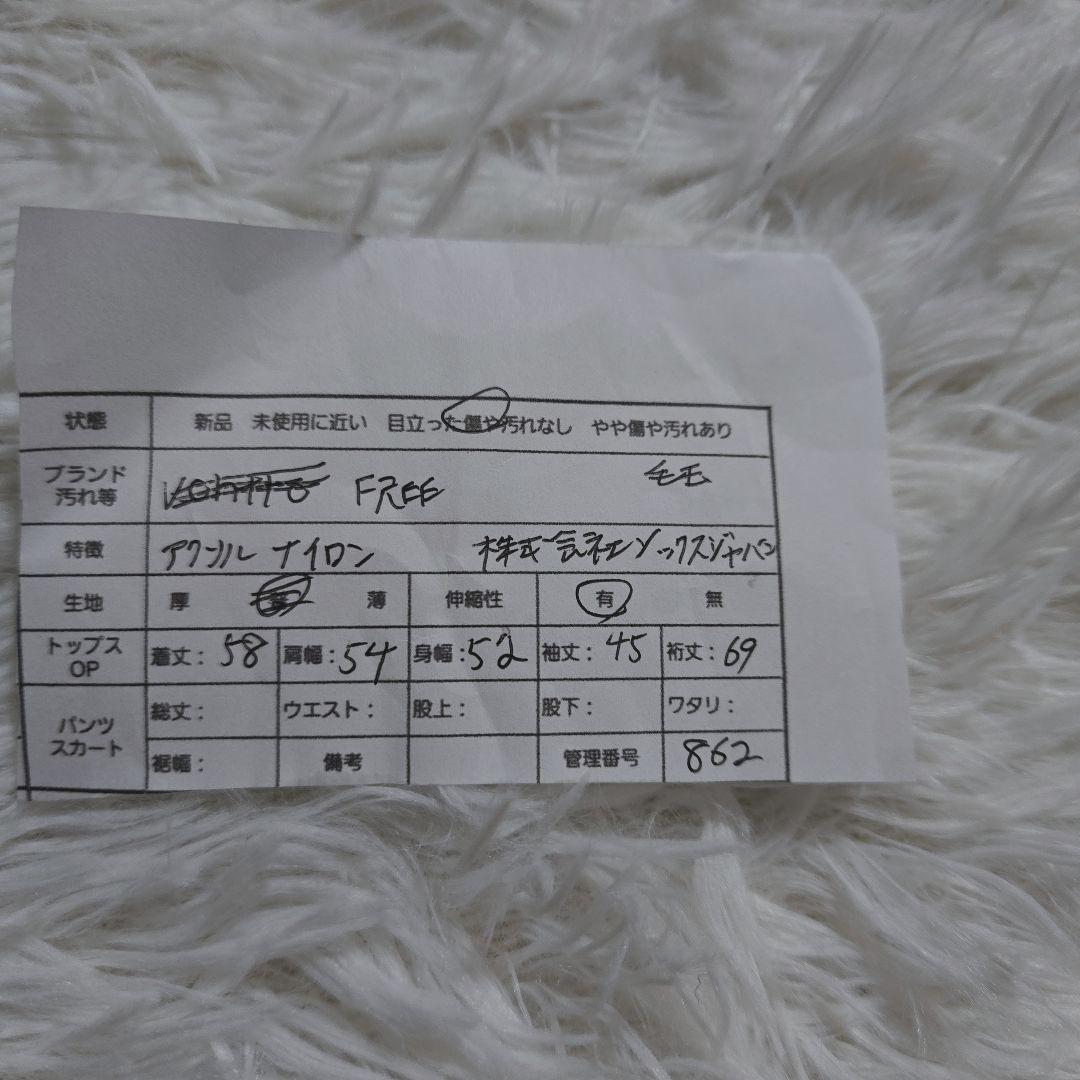 状態 新品 未使用に近い 目立った傷や汚れなし やや傷や汚れあり
ブランド
汚れ等 FREE 毛毛
特徴 アクリル ナイロン 株式会社エソックスジャパン
生地 厚 薄 伸縮性 有 無
トップス
OP 着丈: 58 肩幅: 54 身幅: 52 袖丈: 45 裄丈: 69
パンツ
スカート 総丈: ウエスト: 股上: 股下: ワタリ:
裾幅: 備考 管理番号 862